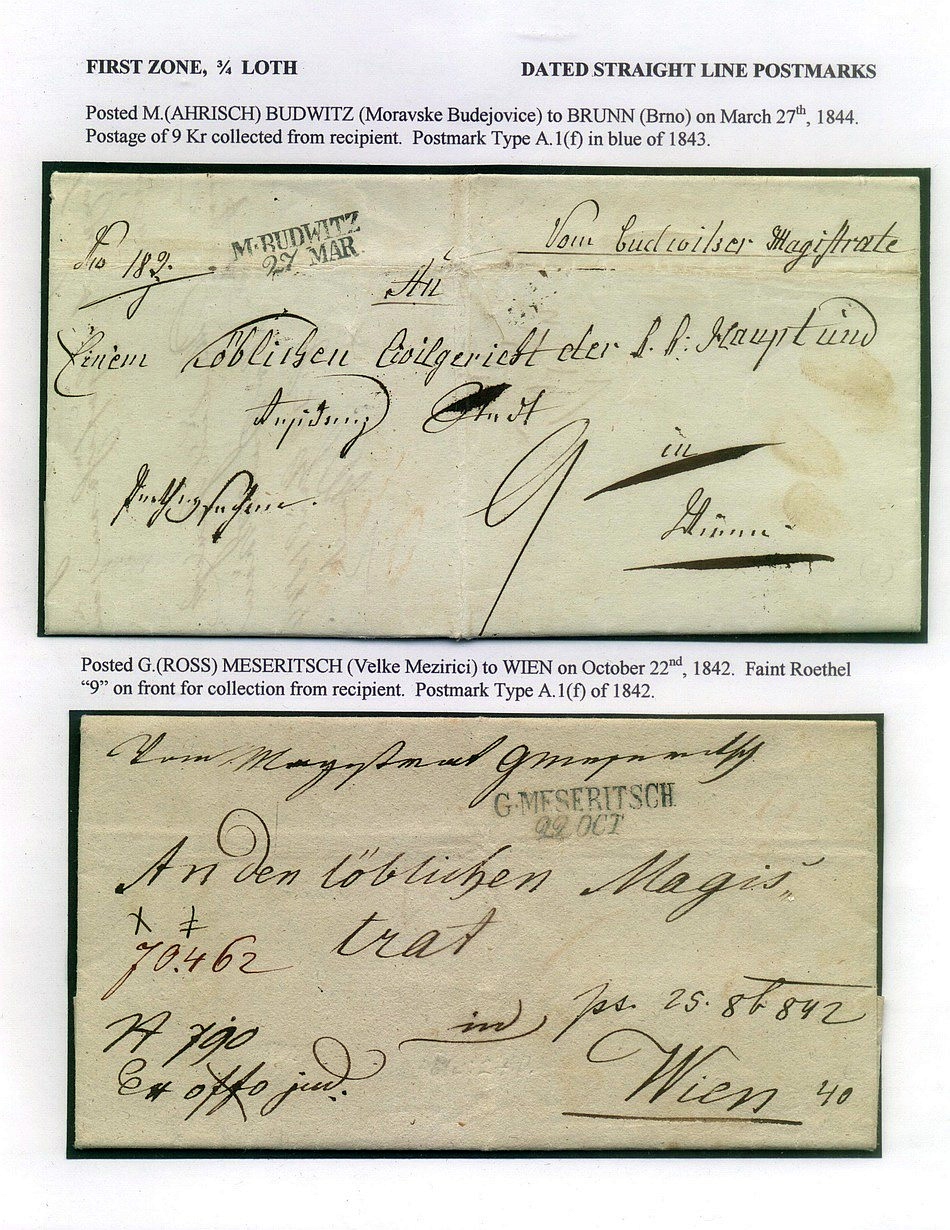 FIRST ZONE, ¾ LOTH
DATED STRAIGHT LINE POSTMARKS
Posted M.(AHRISCH) BUDWITZ (Moravske Budejovice) to BRUNN (Brno) on March 27th, 1844.
Postage of 9 Kr collected from recipient. Postmark Type A.1(f) in blue of 1843.
M·BUDWITZ
27 MAR
Vom Budwitzer Magistrate
An
Einem Löblichen Civilgericht der k. k: Haupt und
Stadt
9
in
Brünn
Posted G.(ROSS) MESERITSCH (Velke Mezirici) to WIEN on October 22nd, 1842. Faint Roethel
“9” on front for collection from recipient. Postmark Type A.1(f) of 1842.
Vom Magistrat
G·MESERITSCH
22 OCT
An den löblichen Magis„
trat
70.462
ps. 25. 8b 842
N 790
in
Ex offo jud.
Wien
40